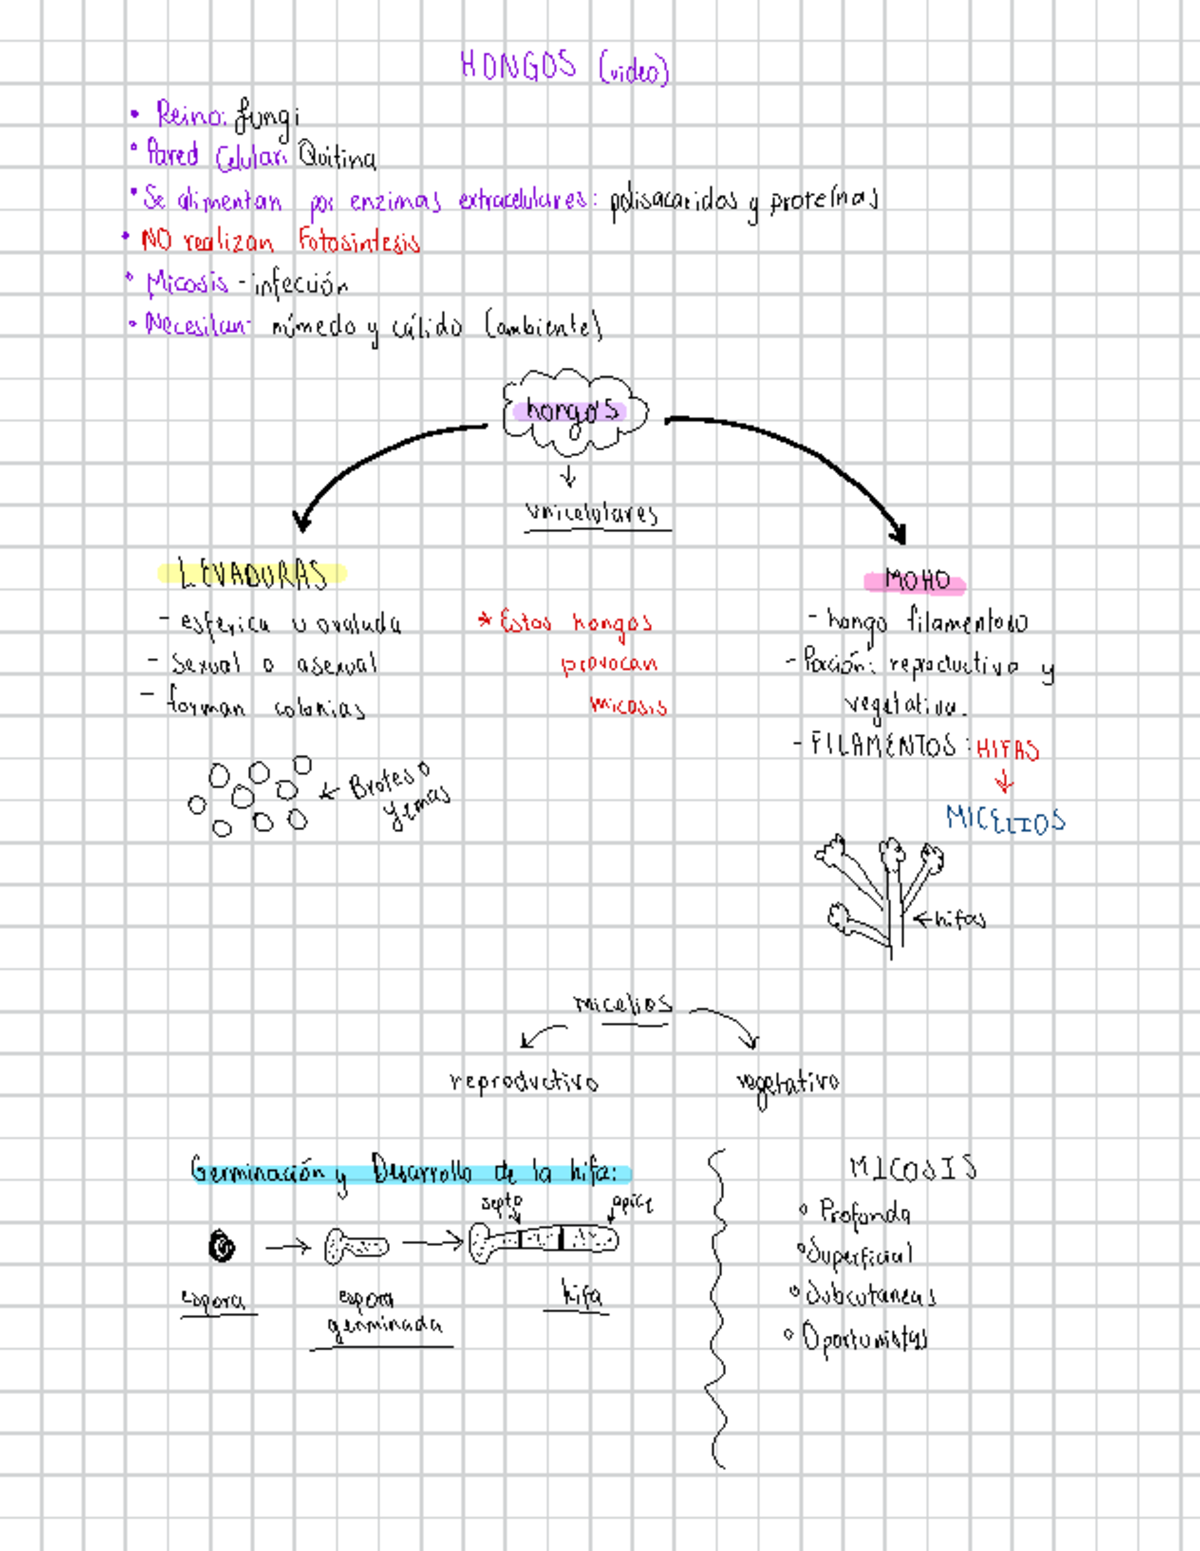 HONGOS (video)
• Reino: fungi
• Pared Celular: Quitina
• Se alimentan por enzimas extracelulares: polisacaridos y proteínas
• NO realizan Fotosintesis
• Micosis - infección
• Necesitan: húmedo y cálido (ambiente)
hongo's
↓
unicelulares
LEVADURAS
- esferica u ovalada
- Sexual o asexual
- forman colonias
← Brotes o
yemas
* Estos hongos
provocan
micosis
MOHO
- hongo filamentoso
- Porción: reproductiva y
vegetativa.
- FILAMENTOS: HIFAS
↓
MICELIOS
← hifas
micelios
reproductivo
vegetativo
Germinación y Desarrollo de la hifa:
septo
apice
espora
espora
germinada
hifa
MICOSIS
• Profunda
• Superficial
• Subcutaneas
• Oportunistas